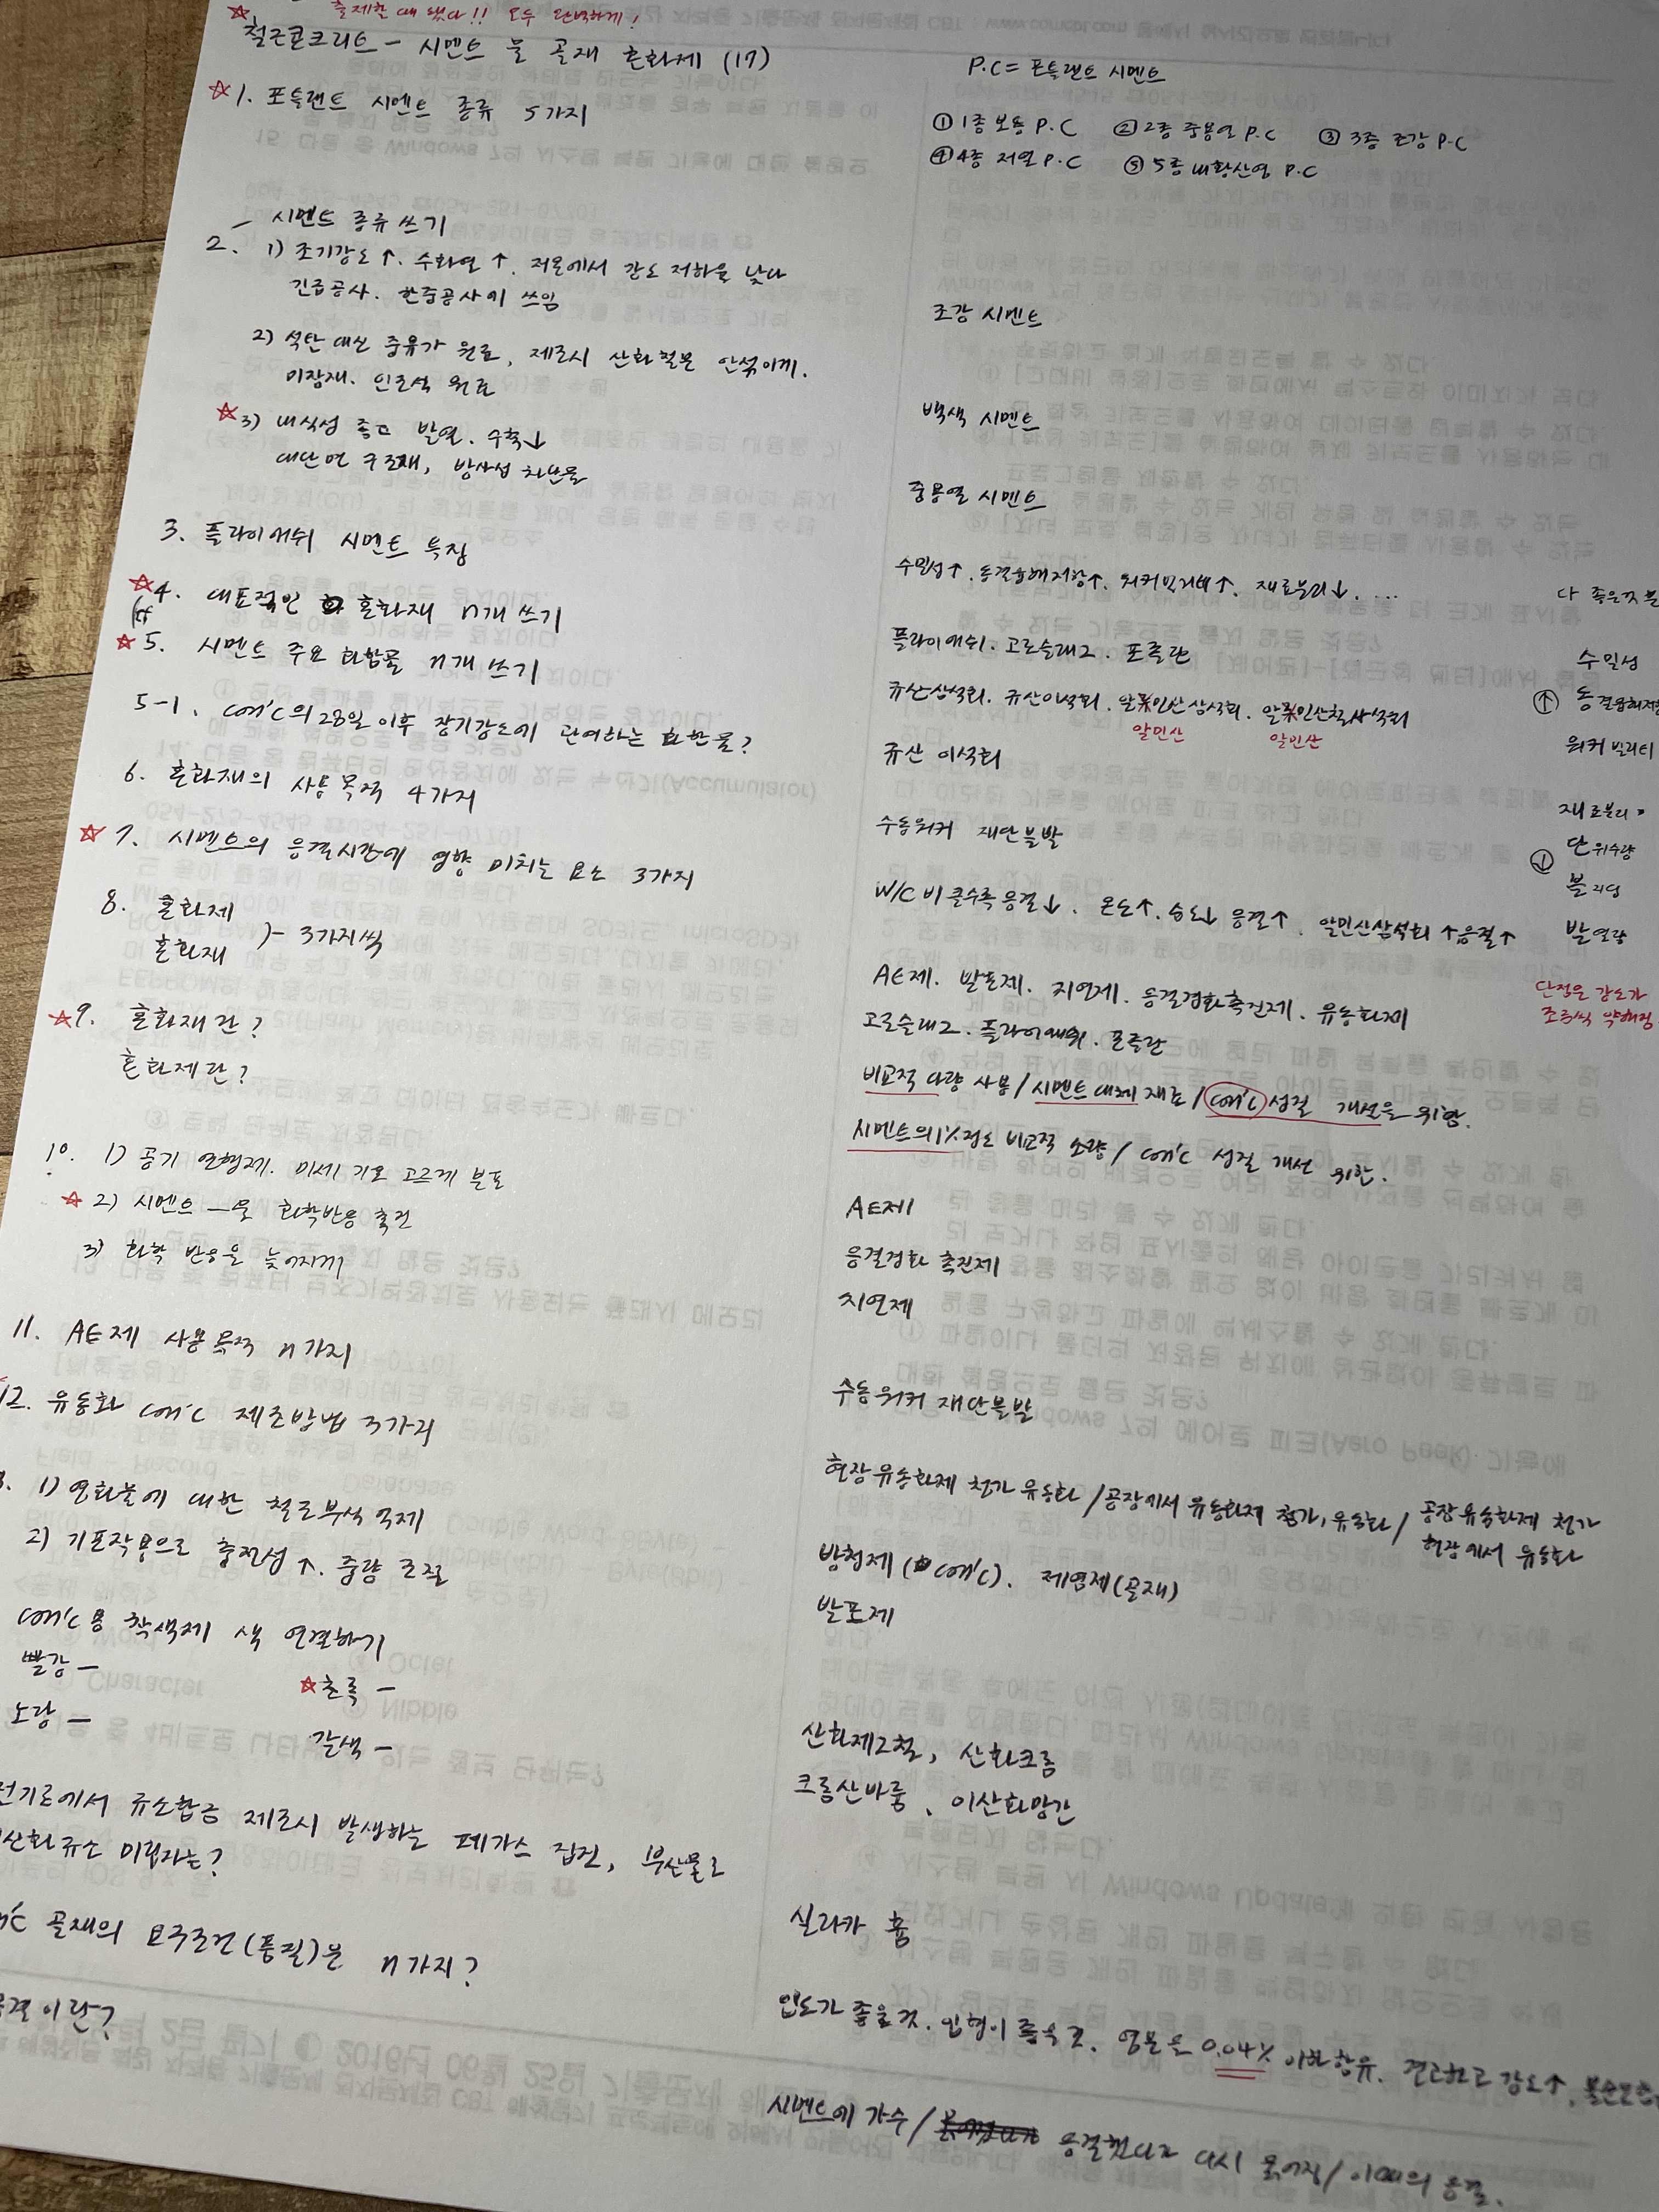 출제할 때 됐다!! 모두 완벽하게!
철근콘크리트 - 시멘트 물 골재 혼화제 (17)
P.C = 포틀랜트 시멘트
1. 포틀랜트 시멘트 종류 5가지
① 1종 보통 P.C ② 2종 중용열 P.C ③ 3종 조강 P.C
④ 4종 저열 P.C ⑤ 5종 내황산염 P.C
시멘트 종류 쓰기
2. 1) 조기강도↑. 수화열↑. 저온에서 강도 저하율 낮다
긴급공사. 한중공사에 쓰임
조강 시멘트
2) 석탄 대신 중유가 원료, 제조시 산화철분 안섞이게.
미장재. 인조석 원료
백색 시멘트
3) 내식성 좋고 발열. 수축↓
대단면 구조재, 방사성 차단물
중용열 시멘트
3. 플라이애쉬 시멘트 특징
수밀성↑. 동결융해저항↑. 워커빌리티↑. 재료분리↓. ...
4. 대표적인 혼화재 n개 쓰기
플라이애쉬. 고로슬래그. 포졸란
5. 시멘트 주요 화합물 n개 쓰기
규산삼석회. 규산이석회. 알인산삼석회. 알인산철사석회
알민산 알민산
5-1. con'c의 28일 이후 장기강도에 관여하는 화합물?
규산 이석회
6. 혼화재의 사용목적 4가지
수동워커 재단블발
7. 시멘트의 응결시간에 영향 미치는 요소 3가지
W/C비 클수록 응결↓. 온도↑. 습도↓ 응결↑. 알민산삼석회↑응결↑
8. 혼화제
혼화재 )- 3가지씩
AE제. 발포제. 지연제. 응결경화촉진제. 유동화제
고로슬래그. 플라이애쉬. 포졸란
다 좋은것
수밀성
↑ 동결융해저항
워커빌리티
재료분리
단위수량
↓ 블리딩
발열량
단점은 강도가
조금씩 약해짐
9. 혼화재란?
비교적 다량 사용/시멘트 대체 재료/con'c 성질 개선을 위함.
혼화제란?
시멘트의 1%정도 비교적 소량/con'c 성질 개선 위한.
10. 1) 공기 연행제. 미세 기포 고르게 분포
AE제
2) 시멘트 - 물 화학반응 촉진
응결경화 촉진제
3) 화학 반응을 늦어지게
지연제
11. AE제 사용목적 n가지
수동워커 재단블발
12. 유동화 con'c 제조방법 3가지
현장유동화제 첨가 유동화/공장에서 유동화제 첨가, 유동화/공장유동화제 첨가
현장에서 유동화
1) 염화물에 대한 철로부식 억제
방청제 (con'c). 제염제(골재)
2) 기포작용으로 충전성↑. 중량 조절
발포제
con'c용 착색제 색 연결하기
빨강 - 초록 -
노랑 - 갈색 -
산화제2철, 산화크롬
크롬산바륨, 이산화망간
전기로에서 규소합금 제조시 발생하는 폐가스 집진, 부산물로
산화규소 미립자는?
실리카 흄
골재의 요구조건(품질)은 n가지?
입도가 좋을것. 입형이 좋을것. 염분은 0.04% 이하 함유. 견고하고 강도↑.
결이란?
시멘트에 가수/ 응결했다고 다시 묽어짐/이때의 응결.